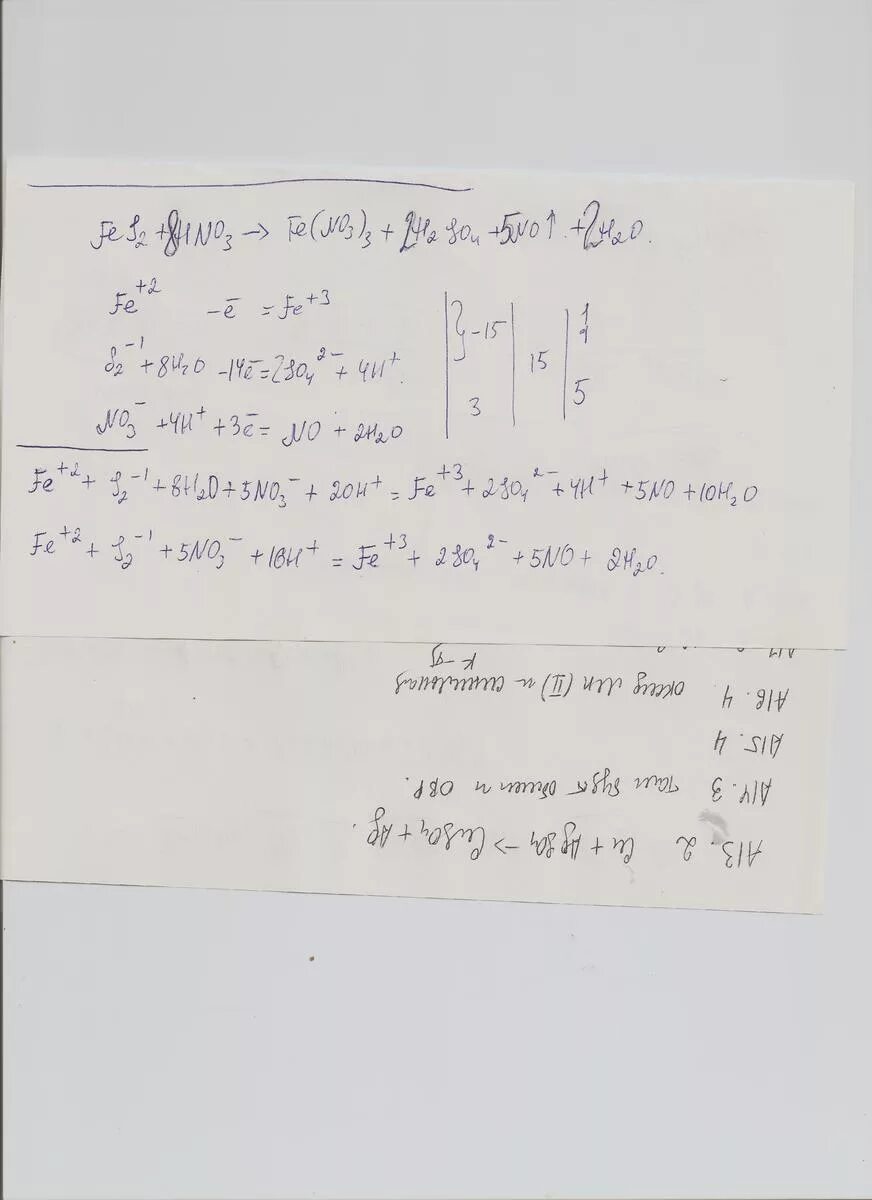 FeS₂ + 8HNO₃ → Fe(NO₃)₃ + 2H₂SO₄ + 5NO↑ + 2H₂O.
Fe⁺² - ē = Fe⁺³ | }-15 | | 1
S₂⁻¹ + 8H₂O - 14ē = 2SO₄²⁻ + 4H⁺. | | 15 | 1
NO₃⁻ + 4H⁺ + 3ē = NO + 2H₂O | 3 | | 5
Fe⁺² + S₂⁻¹ + 8H₂O + 5NO₃⁻ + 20H⁺ = Fe⁺³ + 2SO₄²⁻ + 4H⁺ + 5NO + 10H₂O
Fe⁺² + S₂⁻¹ + 5NO₃⁻ + 16H⁺ = Fe⁺³ + 2SO₄²⁻ + 5NO + 2H₂O.
A13. 2 Cu + AgSO₄ → CuSO₄ + Ag.
A14. 3 там будет обмен и ОВР.
A15. 4
A16. 4. оксид меди (II) и
к-та
A17